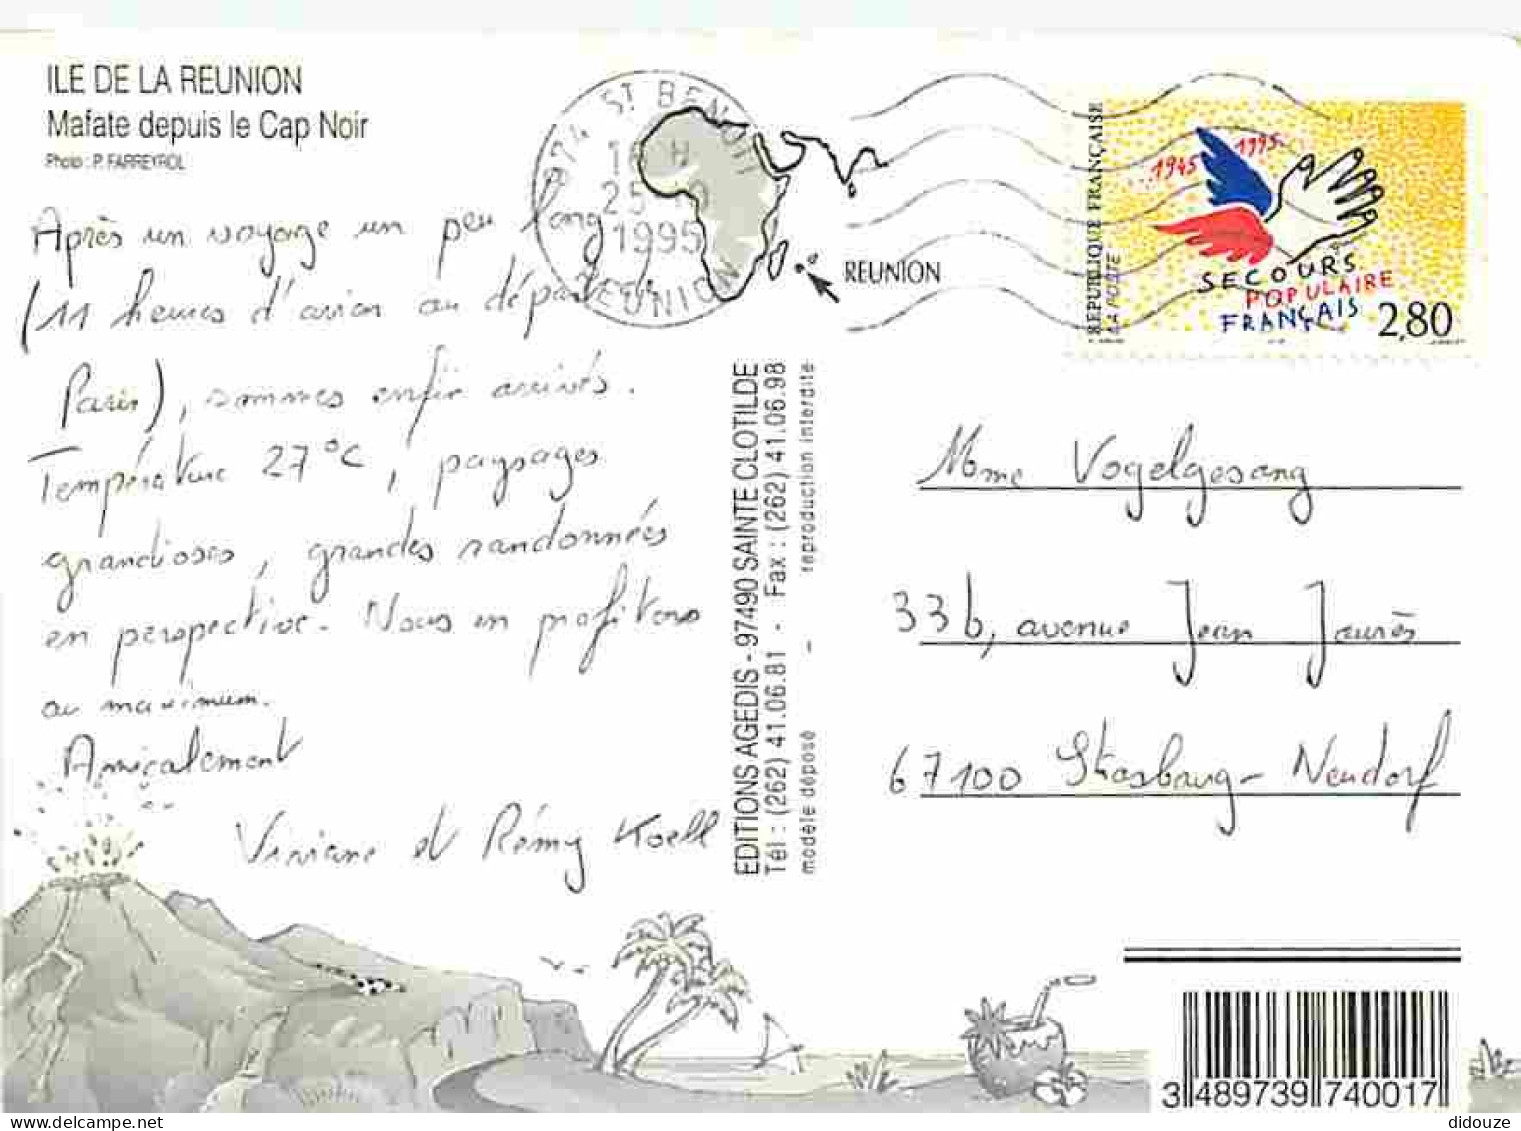 ILE DE LA REUNION
Mafate depuis le Cap Noir
Photo : P. FARREYROL
Après un voyage un peu long
(11 heures d'avion au départ de
Paris), sommes enfin arrivés.
Température 27°C, paysages
grandioses, grandes randonnées
en perspective. Nous en profitons
au maximum.
Amicalement
Viviane et Rémy Koell
974 ST BENOIT
16 H
25
1995
REUNION
REUNION
REPUBLIQUE FRANÇAISE
LA POSTE
1945 1995
SECOURS
POPULAIRE
FRANÇAIS
2,80
EDITIONS AGEDIS - 97490 SAINTE CLOTILDE
Tél : (262) 41.06.81 - Fax : (262) 41.06.98
modèle déposé - reproduction interdite
Mme Vogelgesang
33b, avenue Jean Jaurès
67100 Strasbourg-Neudorf
3 489739 740017
didouze